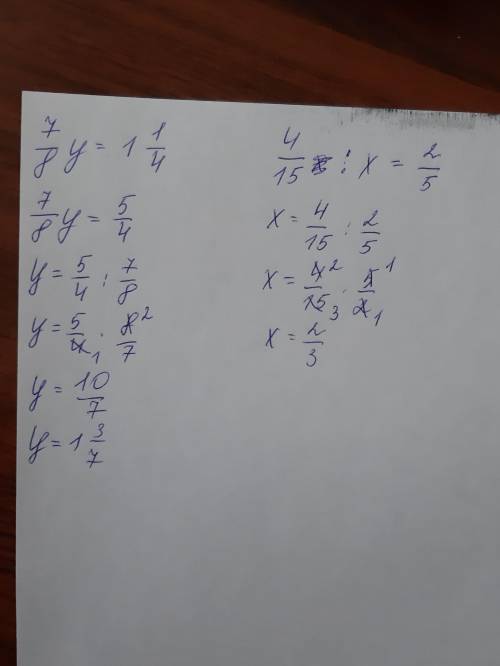 7/8 y = 1 1/4
7/8 y = 5/4
y = 5/4 : 7/8
y = 5/4 1 · 8 2/7
y = 10/7
y = 1 3/7
4/15 : x = 2/5
x = 4/15 : 2/5
x = 4 2/15 3 · 5 1/2 1
x = 2/3